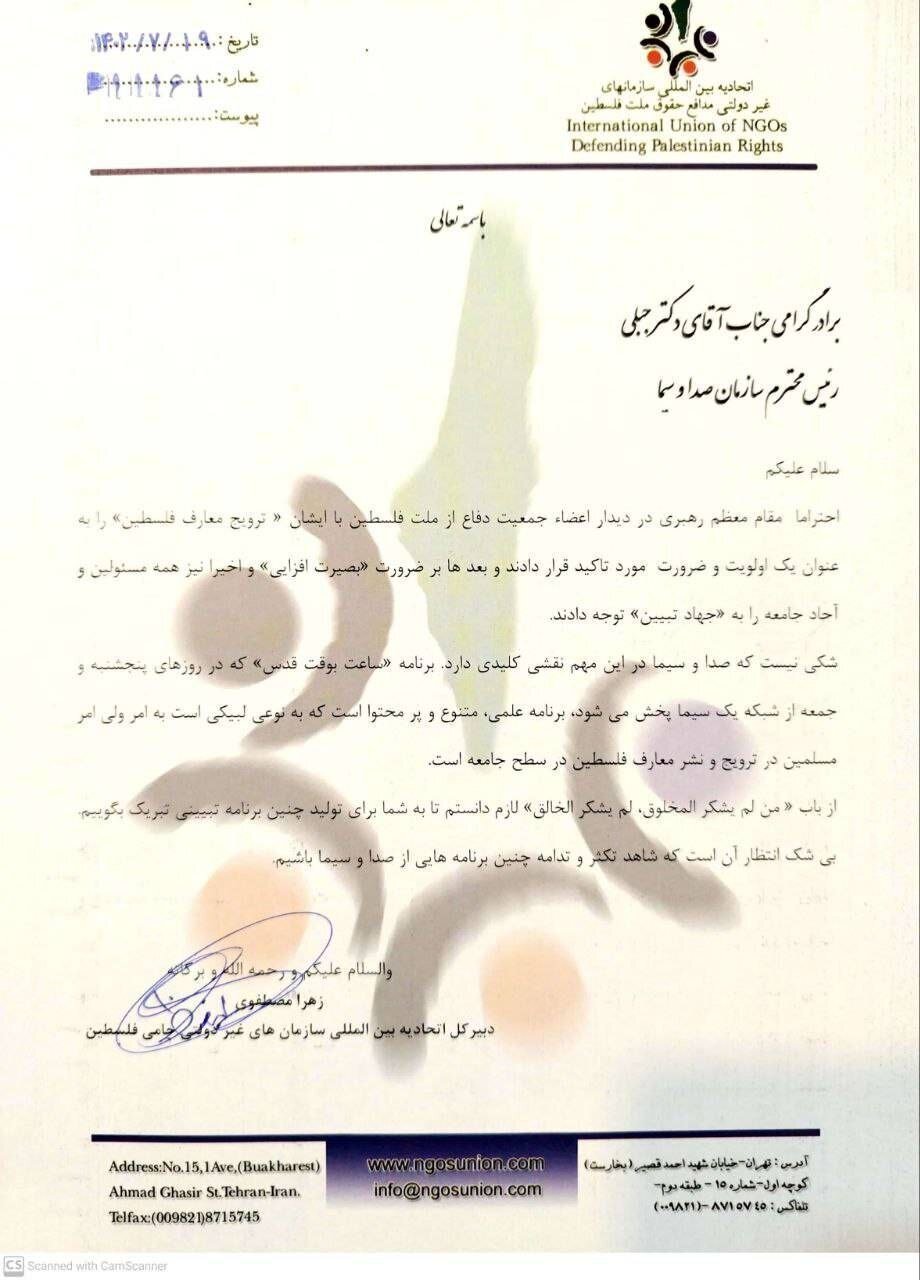 تاریخ: ۱۴۰۲/۷/۱۹
شماره:
پیوست: ..................
اتحادیه بین المللی سازمانهای
غیر دولتی مدافع حقوق ملت فلسطین
International Union of NGOs
Defending Palestinian Rights
باسمه تعالی
برادر گرامی جناب آقای دکتر جبلی
رئیس محترم سازمان صدا و سیما
سلام علیکم
احتراما مقام معظم رهبری در دیدار اعضاء جمعیت دفاع از ملت فلسطین با ایشان « ترویج معارف فلسطین» را به
عنوان یک اولویت و ضرورت مورد تاکید قرار دادند و بعد ها بر ضرورت «بصیرت افزایی» و اخیرا نیز همه مسئولین و
آحاد جامعه را به «جهاد تبیین» توجه دادند.
شکی نیست که صدا و سیما در این مهم نقشی کلیدی دارد. برنامه «ساعت بوقت قدس» که در روزهای پنجشنبه و
جمعه از شبکه یک سیما پخش می شود، برنامه علمی، متنوع و پر محتوا است که به نوعی لبیکی است به امر ولی امر
مسلمین در ترویج و نشر معارف فلسطین در سطح جامعه است.
از باب « من لم یشکر المخلوق، لم یشکر الخالق» لازم دانستم تا به شما برای تولید چنین برنامه تبیینی تبریک بگوییم.
بی شک انتظار آن است که شاهد تکثر و تدامه چنین برنامه هایی از صدا و سیما باشیم.
والسلام علیکم و رحمه الله و برکاته
زهرا مصطفوی
دبیرکل اتحادیه بین المللی سازمان های غیر دولتی حامی فلسطین
Address:No.15,1Ave,(Buakharest)
Ahmad Ghasir St.Tehran-Iran.
Telfax:(009821)8715745
www.ngosunion.com
info@ngosunion.com
آدرس : تهران-خیابان شهید احمد قصیر (بخارست)
کوچه اول-شماره ۱۵ - طبقه دوم-
تلفاکس : ۸۷۱۵۷۴۵ -(۰۰۹۸۲۱)
CS Scanned with CamScanner